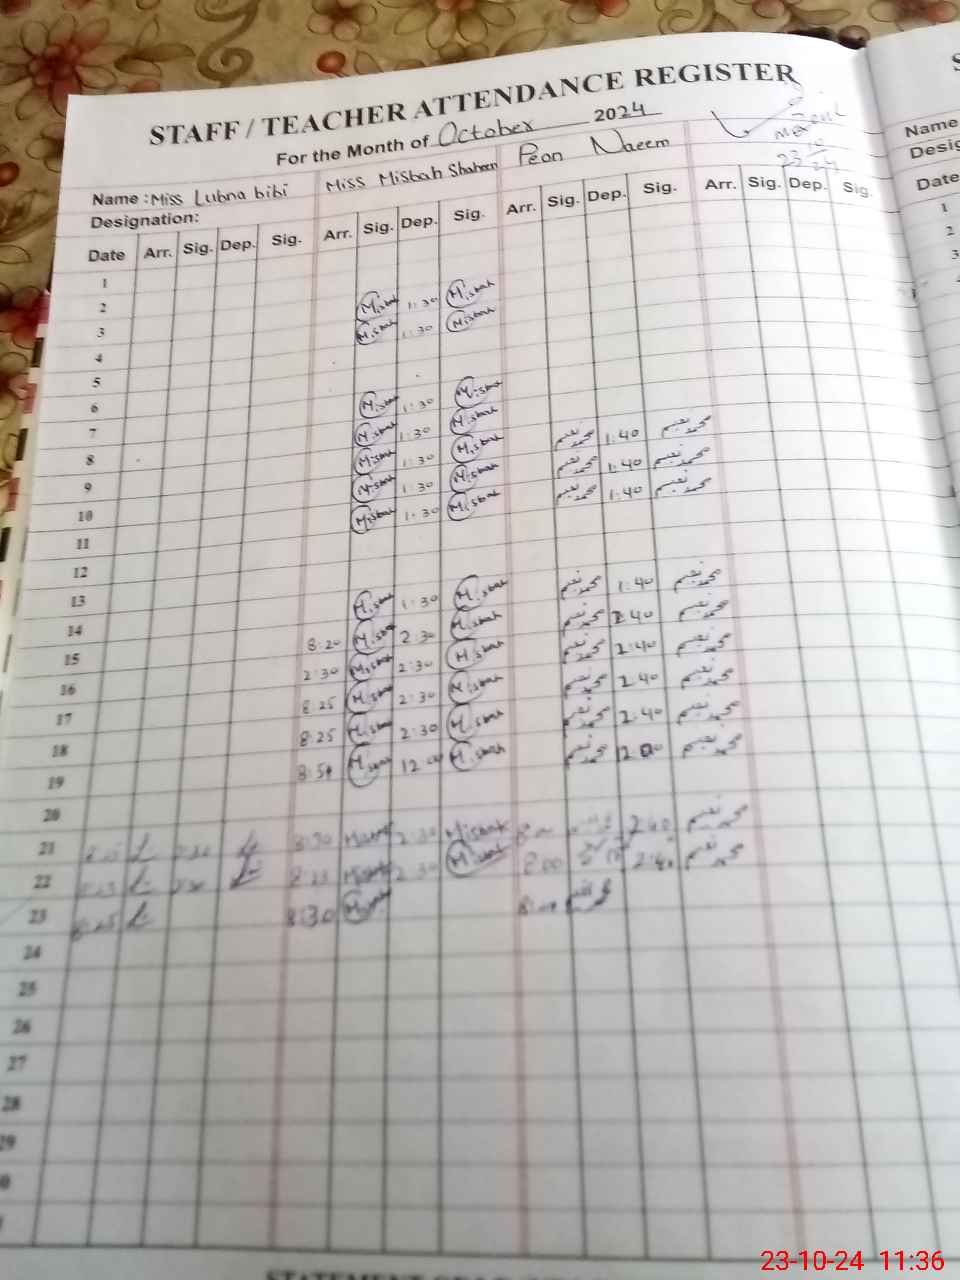 STAFF / TEACHER ATTENDANCE REGISTER
For the Month of October 2024
Name : Miss Lubna bibi Miss Misbah Shaheen Peon Naeem
23/10/24
Designation:
Date Arr. Sig. Dep. Sig. Arr. Sig. Dep. Sig. Arr. Sig. Dep. Sig. Arr. Sig. Dep. Sig.
1
2 Misbah 1:30 Misbah
3 Misbah 1:30 Misbah
4
5
6 Misbah 1:30 Misbah
7 Misbah 1:30 Misbah محمد نعیم 1:40 محمد نعیم
8 Misbah 1:30 Misbah محمد نعیم 1:40 محمد نعیم
9 Misbah 1:30 Misbah محمد نعیم 1:40 محمد نعیم
10 Misbah 1:30 Misbah
11
12
13 Misbah 1:30 Misbah محمد نعیم 1:40 محمد نعیم
14 8:20 Misbah 2:30 Misbah محمد نعیم 2:40 محمد نعیم
15 2:30 Misbah 2:30 Misbah محمد نعیم 2:40 محمد نعیم
16 8:25 Misbah 2:30 Misbah محمد نعیم 2:40 محمد نعیم
17 8:25 Misbah 2:30 Misbah محمد نعیم 2:40 محمد نعیم
18 Misbah 12:00 Misbah محمد نعیم محمد نعیم
19
20
21 L 8:30 Misbah 2:30 Misbah 2:40 محمد نعیم
22 L L 8:25 Misbah 2:30 Misbah 8:00 2:40 محمد نعیم
23 8:25 L 8:30 Misbah
24
25
26
27
28
29
Name
Desig
Date
1
2
3
23-10-24 11:36